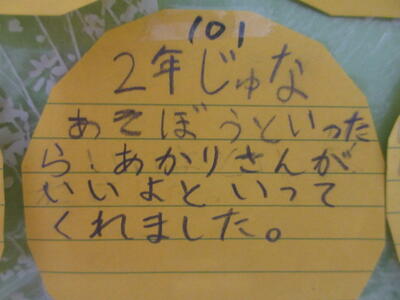 101
2年じゅな
あそぼうといった
ら、あかりさんが
いいよといって
くれました。